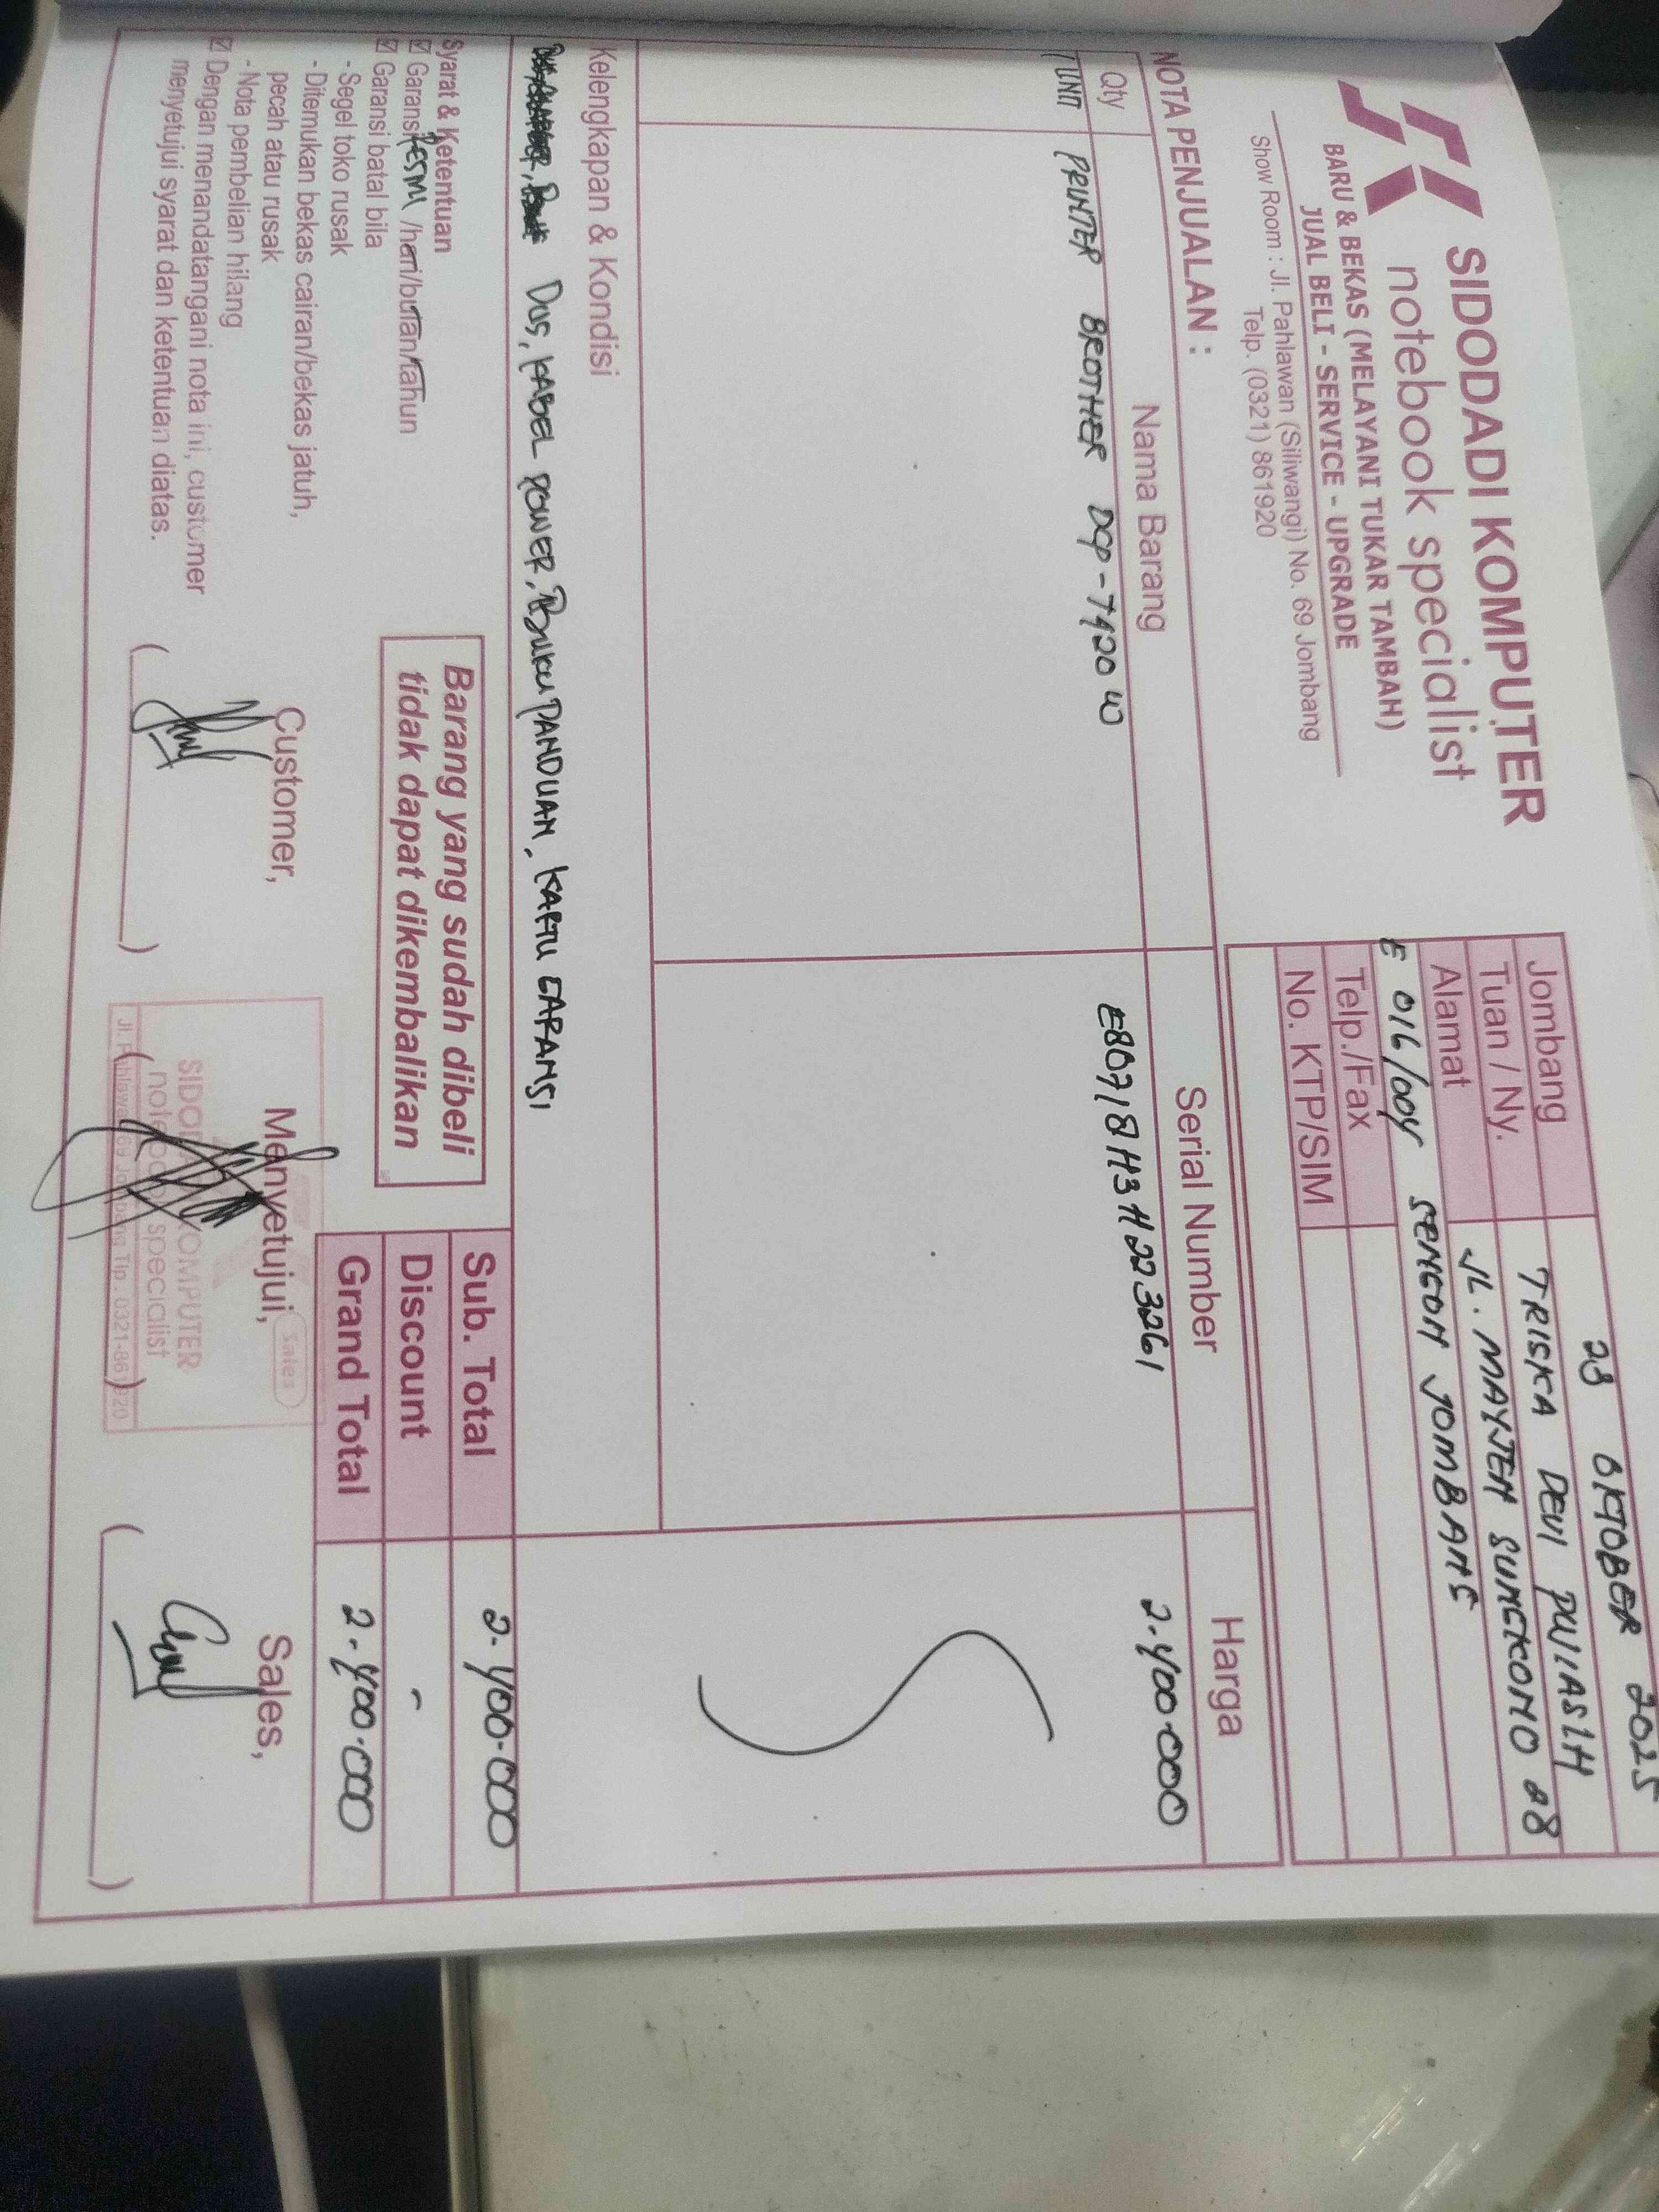 SIDODADI KOMPUTER
notebook specialist
BARU & BEKAS (MELAYANI TUKAR TAMBAH)
JUAL BELI - SERVICE - UPGRADE
Show Room : Jl. Pahlawan (Siliwangi) No. 69 Jombang
Telp. (0321) 861920
Jombang 28 OKTOBER 2025
Tuan / Ny. TRISKA DEVI PWIASIH
Alamat JL. MAYJEN SUNGKONO 28
E 016/004 SENGON JOMBANG
Telp./Fax
No. KTP/SIM
NOTA PENJUALAN :
Qty Nama Barang Serial Number Harga
1 UNIT PRINTER BROTHER DCP-7420 W E80718H3H223261 2.400.000
Kelengkapan & Kondisi
DUS, KABEL POWER, BUKU PANDUAN, KARTU GARANSI
Syarat & Ketentuan
Garansi RESMI /hari/bulan/tahun
Garansi batal bila
- Segel toko rusak
- Ditemukan bekas cairan/bekas jatuh,
pecah atau rusak
- Nota pembelian hilang
Dengan menandatangani nota ini, customer
menyetujui syarat dan ketentuan diatas.
Barang yang sudah dibeli
tidak dapat dikembalikan
Sub. Total 2.400.000
Discount -
Grand Total 2.400.000
Customer,
Menyetujui,
Sales,
sales
KOMPUTER
specialist
Tlp. 0321-861920